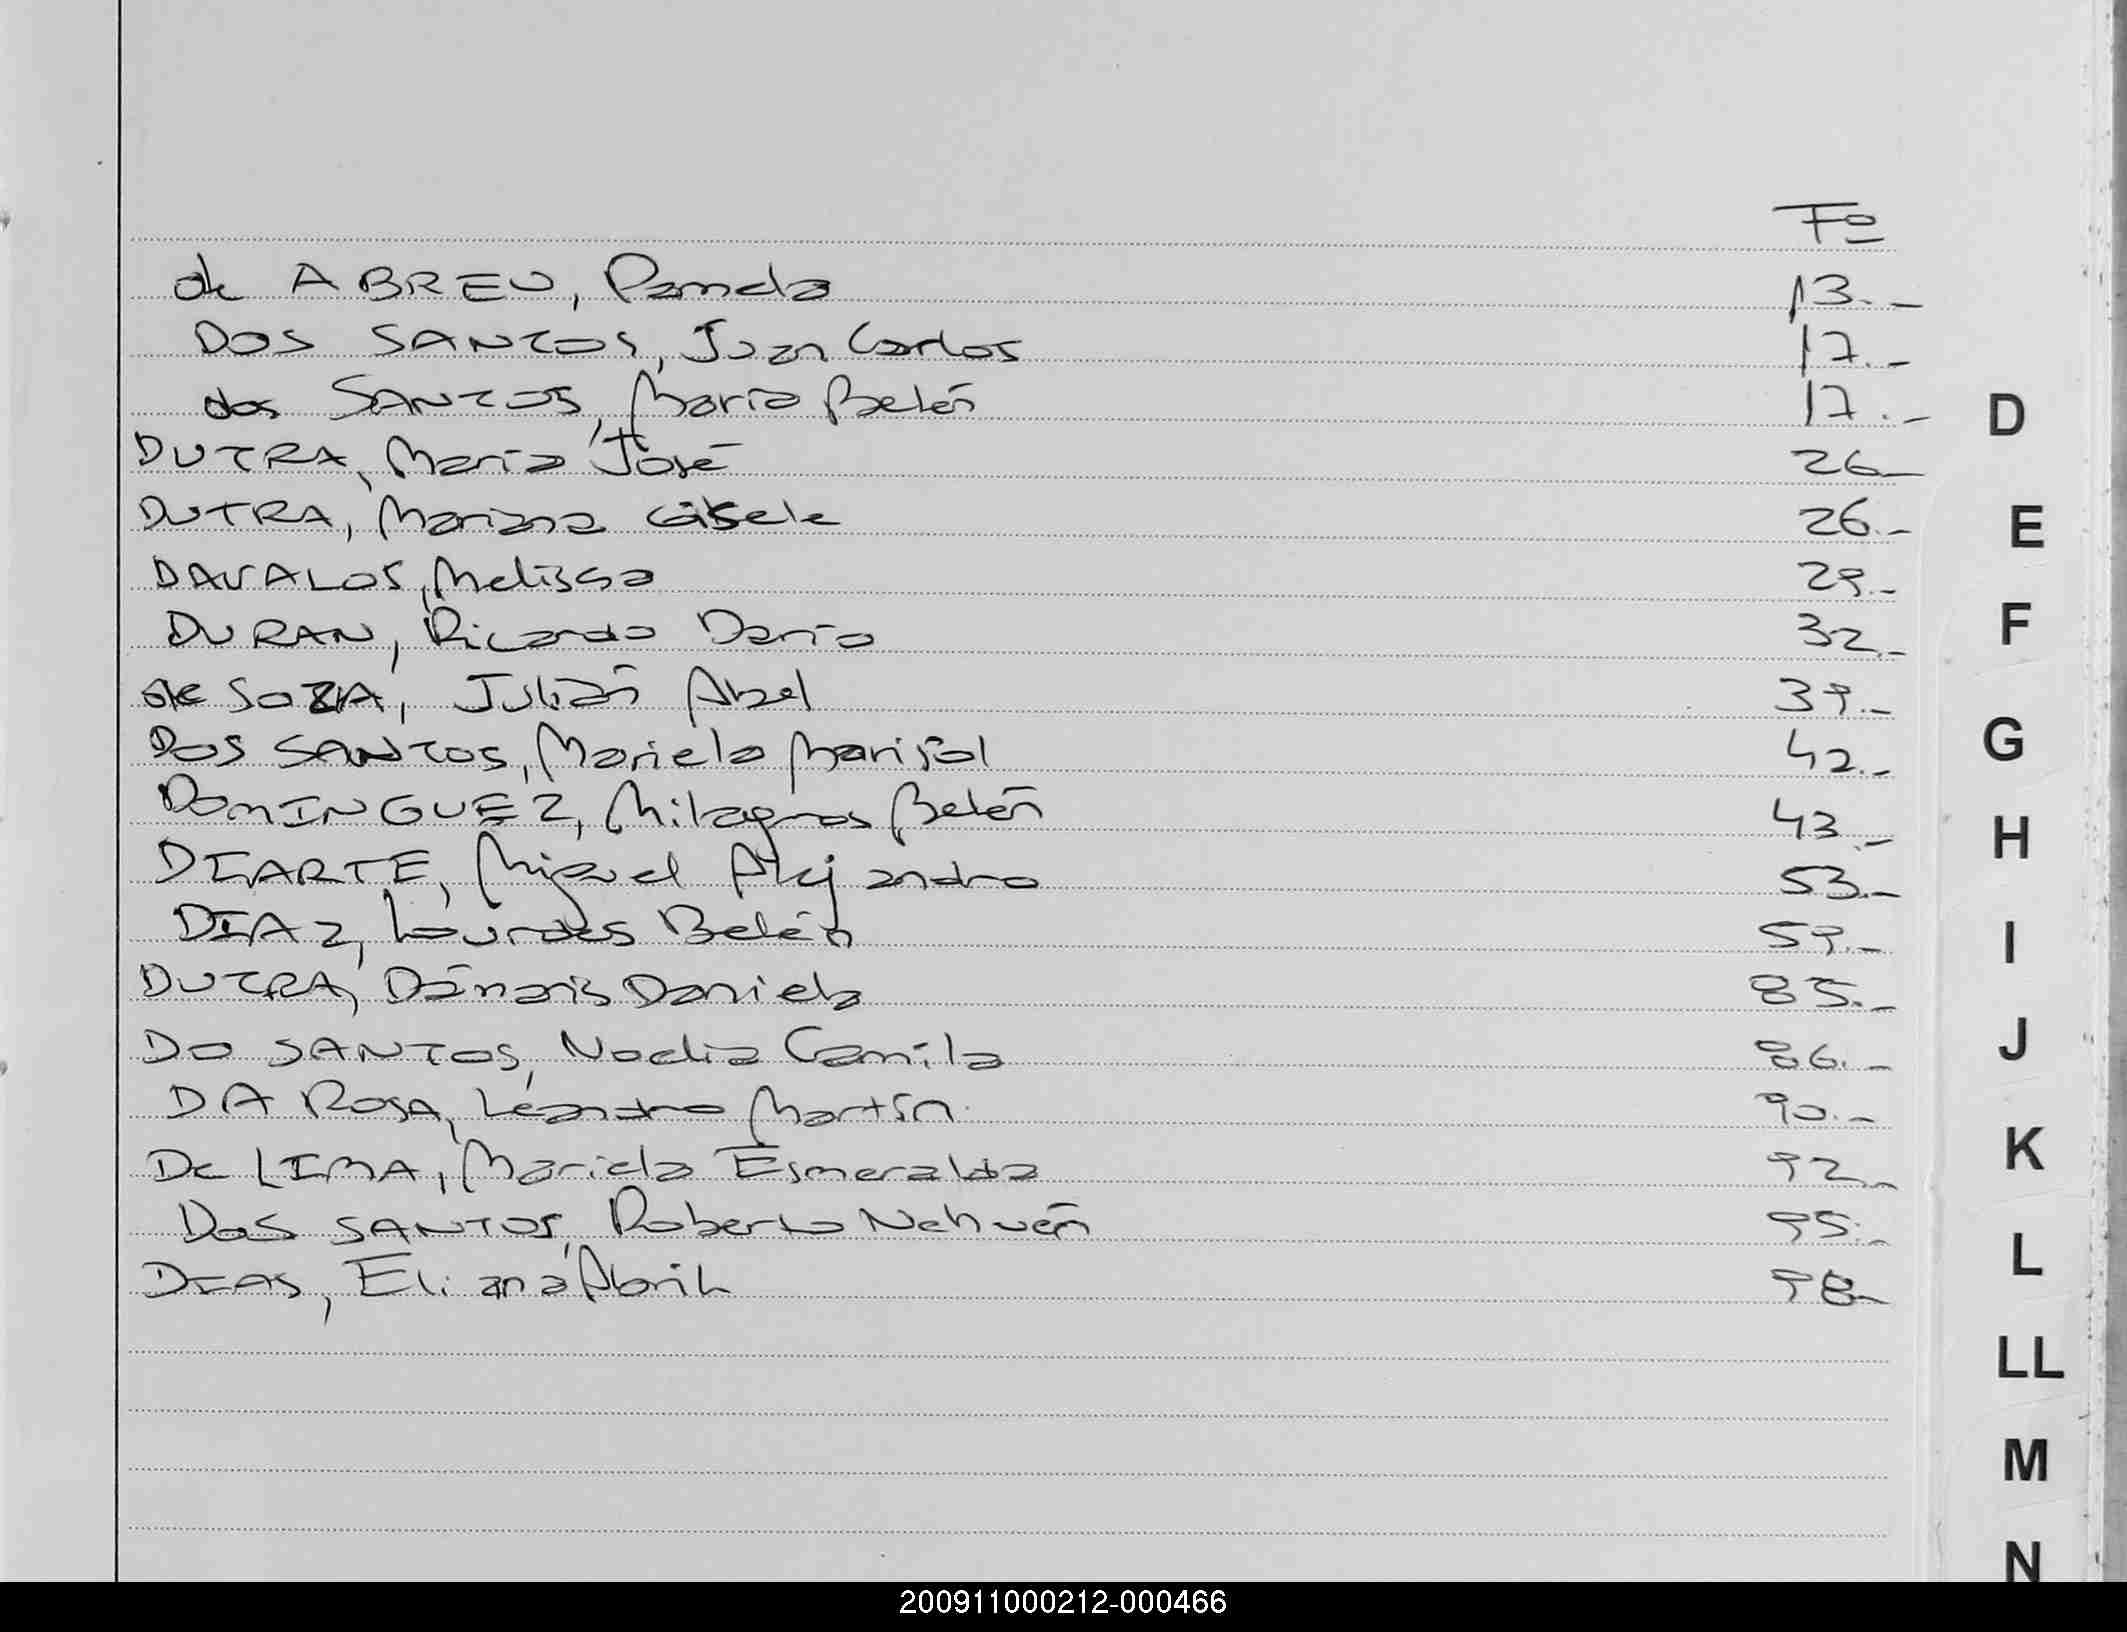 Fº
de ABREU, Pamela 13.-
DOS SANTOS, Juan Carlos 17.-
dos SANTOS, María Belén 17.-
DUTRA, María José 26.-
DUTRA, Mariana Gisele 26.-
DAVALOS, Melissa 29.-
DURAN, Ricardo Darío 32.-
de SOZA, Julián Abel 39.-
DOS SANTOS, Mariela Marisol 42.-
DOMINGUEZ, Milagros Belén 43.-
DIARTE, Miguel Alejandro 53.-
DIAZ, Lourdes Belén 59.-
DUTRA, Dámaris Daniela 85.-
DO SANTOS, Noelia Camila 86.-
DA ROSA, Leandro Martín. 90.-
De LIMA, Mariela Esmeralda 92.-
DOS SANTOS, Roberto Nehuén 95.-
DIAS, Eliana Abril 98.-
D
E
F
G
H
I
J
K
L
LL
M
N
200911000212-000466